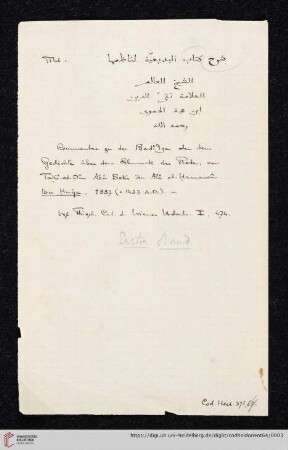 Titel. شرح كتاب البديعية لناظمها
الشيخ العالم
العلامة تقي الدين
ابن حجة الحموي
رحمه الله
Commentar zu der Badîʿîya oder dem
Gedichte über den Schmuck der Rede, von
Taḳî-ed-Dîn Abû Bekr ibn Alî el-Ḥamawî
Ibn Ḥuǧǧa. †837 (= 1433 A.D.). –
vgl. Flügel, Cat. d. Wiener Handschr. I, 474.
Erster Band
Cod. Heid. 375,64.
https://digi.ub.uni-heidelberg.de/diglit/codheidorient64/0003